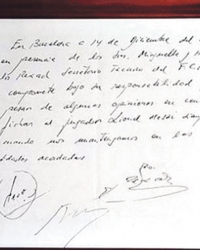 En Barcelona a 14 de Diciembre del
en presencia de los Sres. Minguella y
Rexach Secretario Tecnico del F.C.
compromete bajo su responsabilidad
pesar de algunas opiniones en con
fichar al jugador Lionel
cuando nos mantengamos en las
acordadas